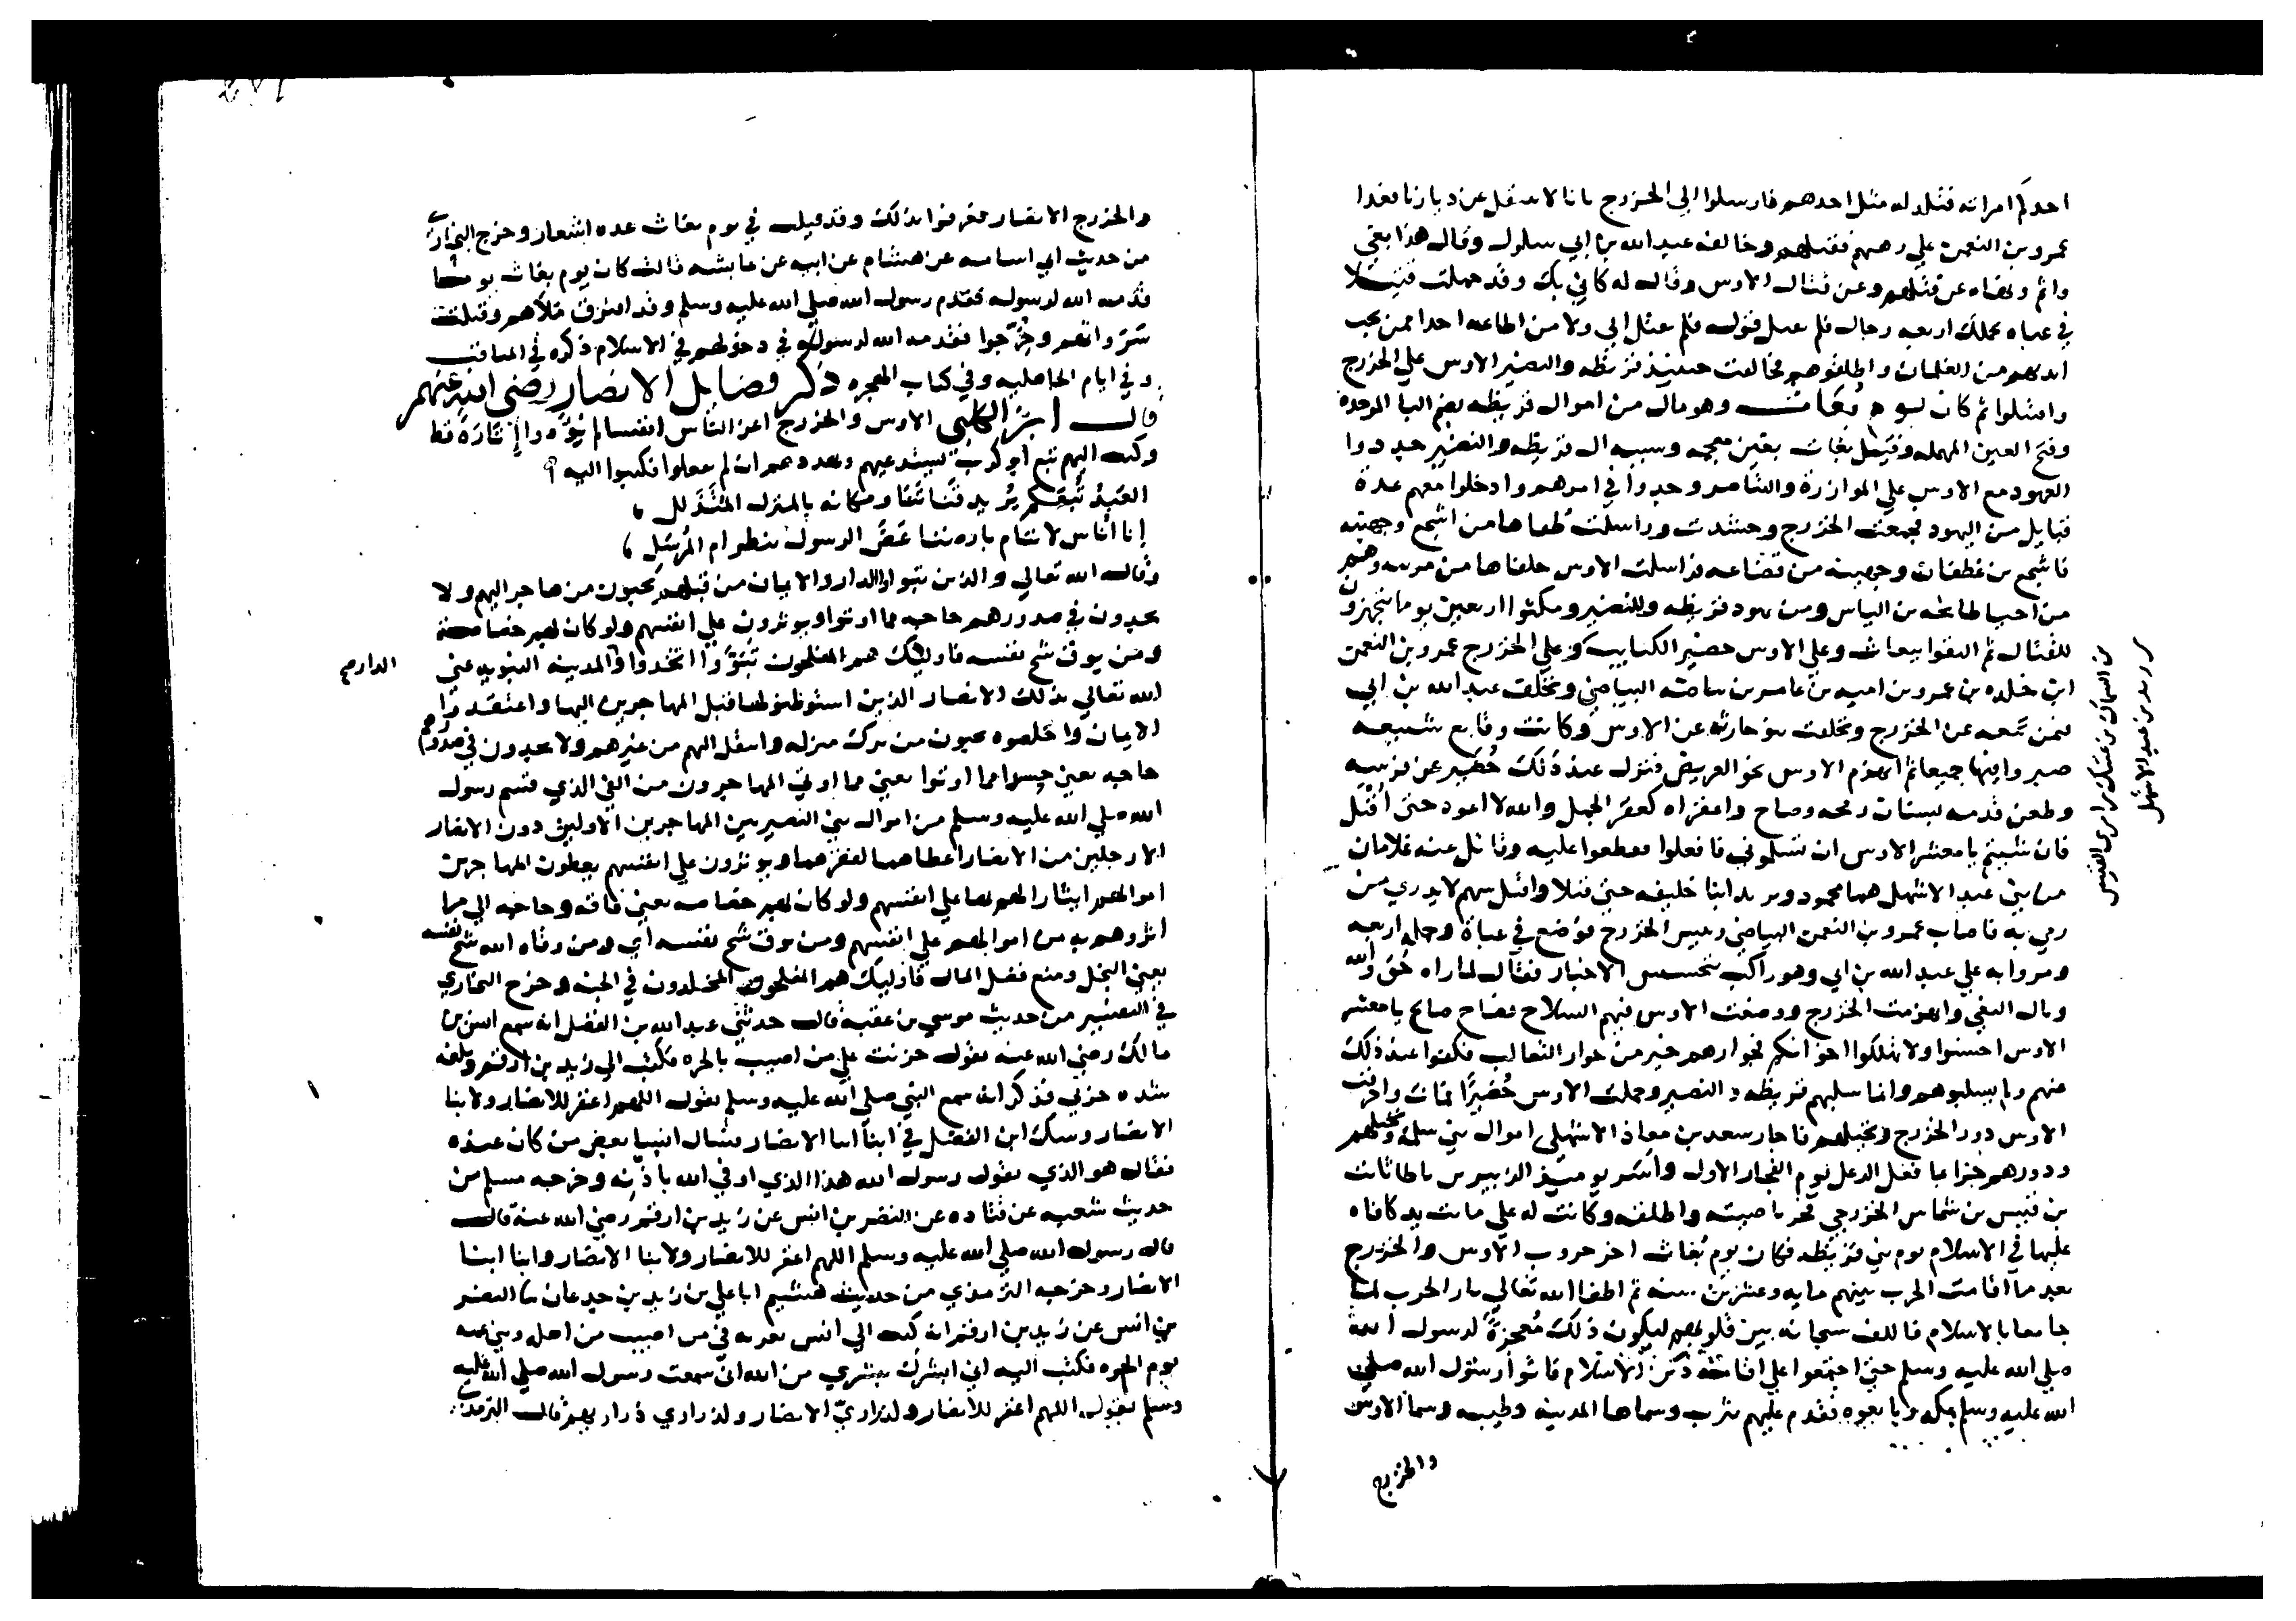 احدكم امراته فتلد له مثل احدهم فارسلوا الي الخزرج بانا لا ننتقل عن ديارنا فعدا
عمرو بن النعمن علي رهنهم فقتلهم وخالفه عبد الله بن ابي سلول وقال هذا بغي
واثم ونهاه عن قتلهم وعن قتال الاوس وقال له كاني بك وقد حملت قتيلا
في عباه يحملك اربعه رجال فلم يقبل قوله فلم يقتل ابي ولا من اطاعه احدا ممن تحت
ايديهم من الغلمان واطلقوهم فحالفت حينيذ قريظه والنضير الاوس علي الخزرج
واقتتلوا ثم كان يوم بُعاث وهو مال من اموال قريظه بضم البا الموحدة
وفتح العين المهمله وقيل بغاث بغين معجمه وسببه ان قريظه والنضير جددوا
العهود مع الاوس علي الموازرة والتناصر وجدوا في امرهم وادخلوا معهم عدة
قبايل من اليهود فجمعت الخزرج وحشدت وراسلت حلفاها من اشجع وجهينه
فاشجع من غطفان وجهينه من قضاعه وراسلت الاوس حلفاها من مزينه وهم
من احيا طابخه بن الياس ومن يهود قريظه والنضير ومكثوا اربعين يوما يتجهزون
للقتال ثم التقوا ببعاث وعلي الاوس حضير الكتايب وعلي الخزرج عمرو بن النعمن
ابن خلده بن عمرو بن اميه بن عامر بن بياضه البياضي وتخلف عبد الله بن ابي
فيمن تبعه عن الخزرج وتخلفت بنو حارثه عن الاوس وكانت وقايع شنيعه
صبروا فيها جميعا ثم انهزم الاوس نحو العريض فنزل عند ذلك حُضير عن فرسه
وطعن قدمه بسنان رمحه وصاح واعقراه كعقر الجمل والله لا اعود حتي اُقتل
فان شيتم يا معشر الاوس ان تسلموني فافعلوا فعطفوا عليه وقاتل عنه غلامان
من بني عبد الاشهل هما محمود ويزيد ابنا خليفه حتي قتلا واقبل سهم لا يدري من
رمي به فاصاب عمرو بن النعمن البياضي رييس الخزرج فوضع في عباة وحمله اربعه
ومروا به علي عبد الله بن ابي وهو راكب يتحسس الاخبار فقال لما راه ذُق والله
وبال البغي وانهزمت الخزرج ووضعت الاوس فيهم السلاح فصاح صايح يا معشر
الاوس احسنوا ولا تهلكوا اخوانكم لجوارهم خير من جوار الثعالب فكفوا عند ذلك
عنهم ولم يسلبوهم وانما سلبهم قريظه والنضير وحملت الاوس حُضيرًا فمات واحرقت
الاوس دور الخزرج ونخيلهم فاجار سعد بن معاذ الاشهلي اموال بني سلمه ونخيلهم
ودورهم جزا بما فعل الرعل يوم الفجار الاول واسر يوميذ الزبير بن باطا ثابت
بن قيس بن شماس الخزرجي فجز ناصيته واطلقه وكانت له علي ثابت يد كافاه
عليها في الاسلام يوم بني قريظه فكان يوم بُعاث اخر حروب الاوس والخزرج
بعد ما اقامت الحرب بينهم مايه وعشرين سنه ثم اطفا الله تعالي نار الحرب لما
جا بالاسلام فالف سبحانه بين قلوبهم ليكون ذلك مُعجزةً لرسول الله
صلي الله عليه وسلم حتي اجتمعوا علي اقامه دين الاسلام فاتوا رسول الله صلي
الله عليه وسلم بمكه وبايعوه فقدم عليهم يثرب وسماها المدينه وطيبه وسما الاوس
والخزرج
بن السماك بن عتيك بن امري القيس
بن زيد بن عبد الاشهل
والخزرج الانصار فعرفوا بذلك وقد قيلت في يوم بعاث عده اشعار وخرج البخاري
من حديث ابي اسامه عن هشام عن ابيه عن عايشه قالت كان يوم بعاث يوما
قدمه الله لرسوله فقدم رسول الله صلي الله عليه وسلم وقد افترق ملاهم وقتلت
سَرَواتهم وجُرّحوا فقدمه الله لرسوله في دخولهم في الاسلام ذكره في المناقب
وفي ايام الجاهليه وفي كتاب الهجره ذكر فضايل الانصار رضي الله عنهم
قال ابن الكلبي الاوس والخزرج اعز الناس انفسا لم يُؤدوا إتاوَةً قط
وكتب اليهم تبع ابو كرب يستدعيهم ويعدهم ان لم يفعلوا فكتبوا اليه
العَبدُ تُبّعكم يُريد قتالنا ومكانه بالمنزل المتذَلل
إنا اناس لا ننام بارضنا عَضَّ الرسول ببظر ام المُرسل
وقال الله تعالي والذين تبوا الدار والايمان من قبلهم يحبون من هاجر اليهم ولا
يجدون في صدورهم حاجه مما اوتوا ويوثرون علي انفسهم ولو كان بهم خصاصه
ومن يوق شح نفسه فاوليك هم المفلحون تبَوّؤا اتخذوا المدينه النبويه عني
الدار مع
الله تعالي بذلك الانصار الذين استوطنوها قبل المهاجرين اليها واعتقدوا
الايمان واخلصوه يحبون من ترك منزله وانتقل اليهم من غيرهم ولا يجدون في صدورهم
حاجه يعني حسدا مما اوتوا يعني مما اوتي المهاجرون من الفي الذي قسم رسول
الله صلي الله عليه وسلم من اموال بني النضير بين المهاجرين الاولين دون الانصار
الا رجلين من الانصار اعطاهما لفقرهما ويوثرون علي انفسهم يعطون المهاجرين
اموالهم ايثارا لهم بها علي انفسهم ولو كان بهم خصاصه يعني فاقه وحاجه الي ما
اثروهم به من اموالهم علي انفسهم ومن يوق شح نفسه اي ومن وقاه الله شح نفسه
يعني البخل ومنع فضل المال فاوليك هم المفلحون المخلدون في الجنه وخرج البخاري
في التفسير من حديث موسي بن عقبه قال حدثني عبد الله بن الفضل انه سمع انس بن
مالك رضي الله عنه يقول حزنت علي من اصيب بالحره فكتب الي زيد بن ارقم وبلغه
شده حزني فذكر انه سمع النبي صلي الله عليه وسلم يقول اللهم اغفر للانصار ولابنا
الانصار وشك ابن الفضل في ابنا ابنا الانصار فسال انسا بعض من كان عنده
فقال هو الذي يقول رسول الله هذا الذي اوفي الله باذنه وخرجه مسلم من
حديث شعبه عن قتاده عن النضر بن انس عن زيد بن ارقم رضي الله عنه قال
قال رسول الله صلي الله عليه وسلم اللهم اغفر للانصار ولابنا الانصار وابنا ابنا
الانصار وخرجه الترمذي من حديث هشيم انا علي بن زيد بن جدعان نا النضر
بن انس عن زيد بن ارقم انه كتب الي انس يعزيه في من اصيب من اهله وبني عمه
يوم الحره فكتب اليه اني ابشرك ببشري من الله اني سمعت رسول الله صلي الله عليه
وسلم يقول اللهم اغفر للانصار ولذراري الانصار ولذراري ذراريهم قال الترمذي